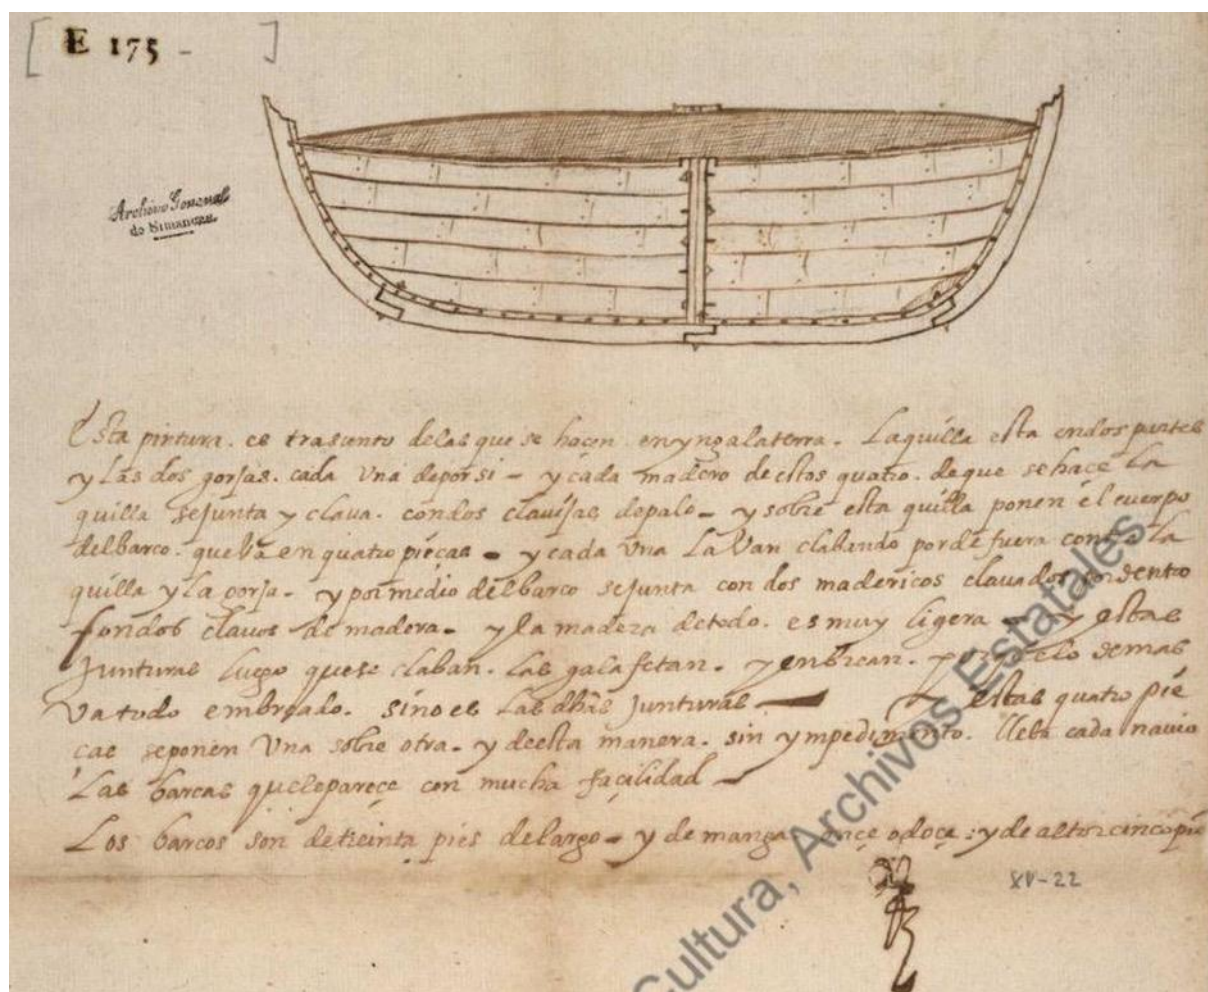 [ E 175 - ]
Archivo General
de Simancas
Esta pintura. es trasunto delas que se hacen en yngalaterra. Laquilla esta endos partes
y las dos gorjas. cada una deporsi - y cada madero de estos quatro. de que se haçe la
quilla sejunta y clava. condos clavijas depalo - y sobre esta quilla ponen el cuerpo
delbarco. queba en quatro pieças - y cada una la Van clabando pordefuera con la
quilla y la gorja - y pormedio delbarco sejunta con dos madericos clavados pordentro
con dos clavos de madera - y la madera detodo. es muy ligera - y estas
Junturas luego quese claban. las galafetan. y enbrean. y lo demas
Va todo embreado. sino es las dhas junturas - estas quatro pie
ças seponen Una sobre otra - y deesta manera. sin ympedimento. lleba cada navio
Las barcas queleparece con mucha façilidad -
Los barcos son detreinta pies delargo - y de manga onçe odoçe : y de altor cinco pie
XV-22
Cultura, Archivos Estatales